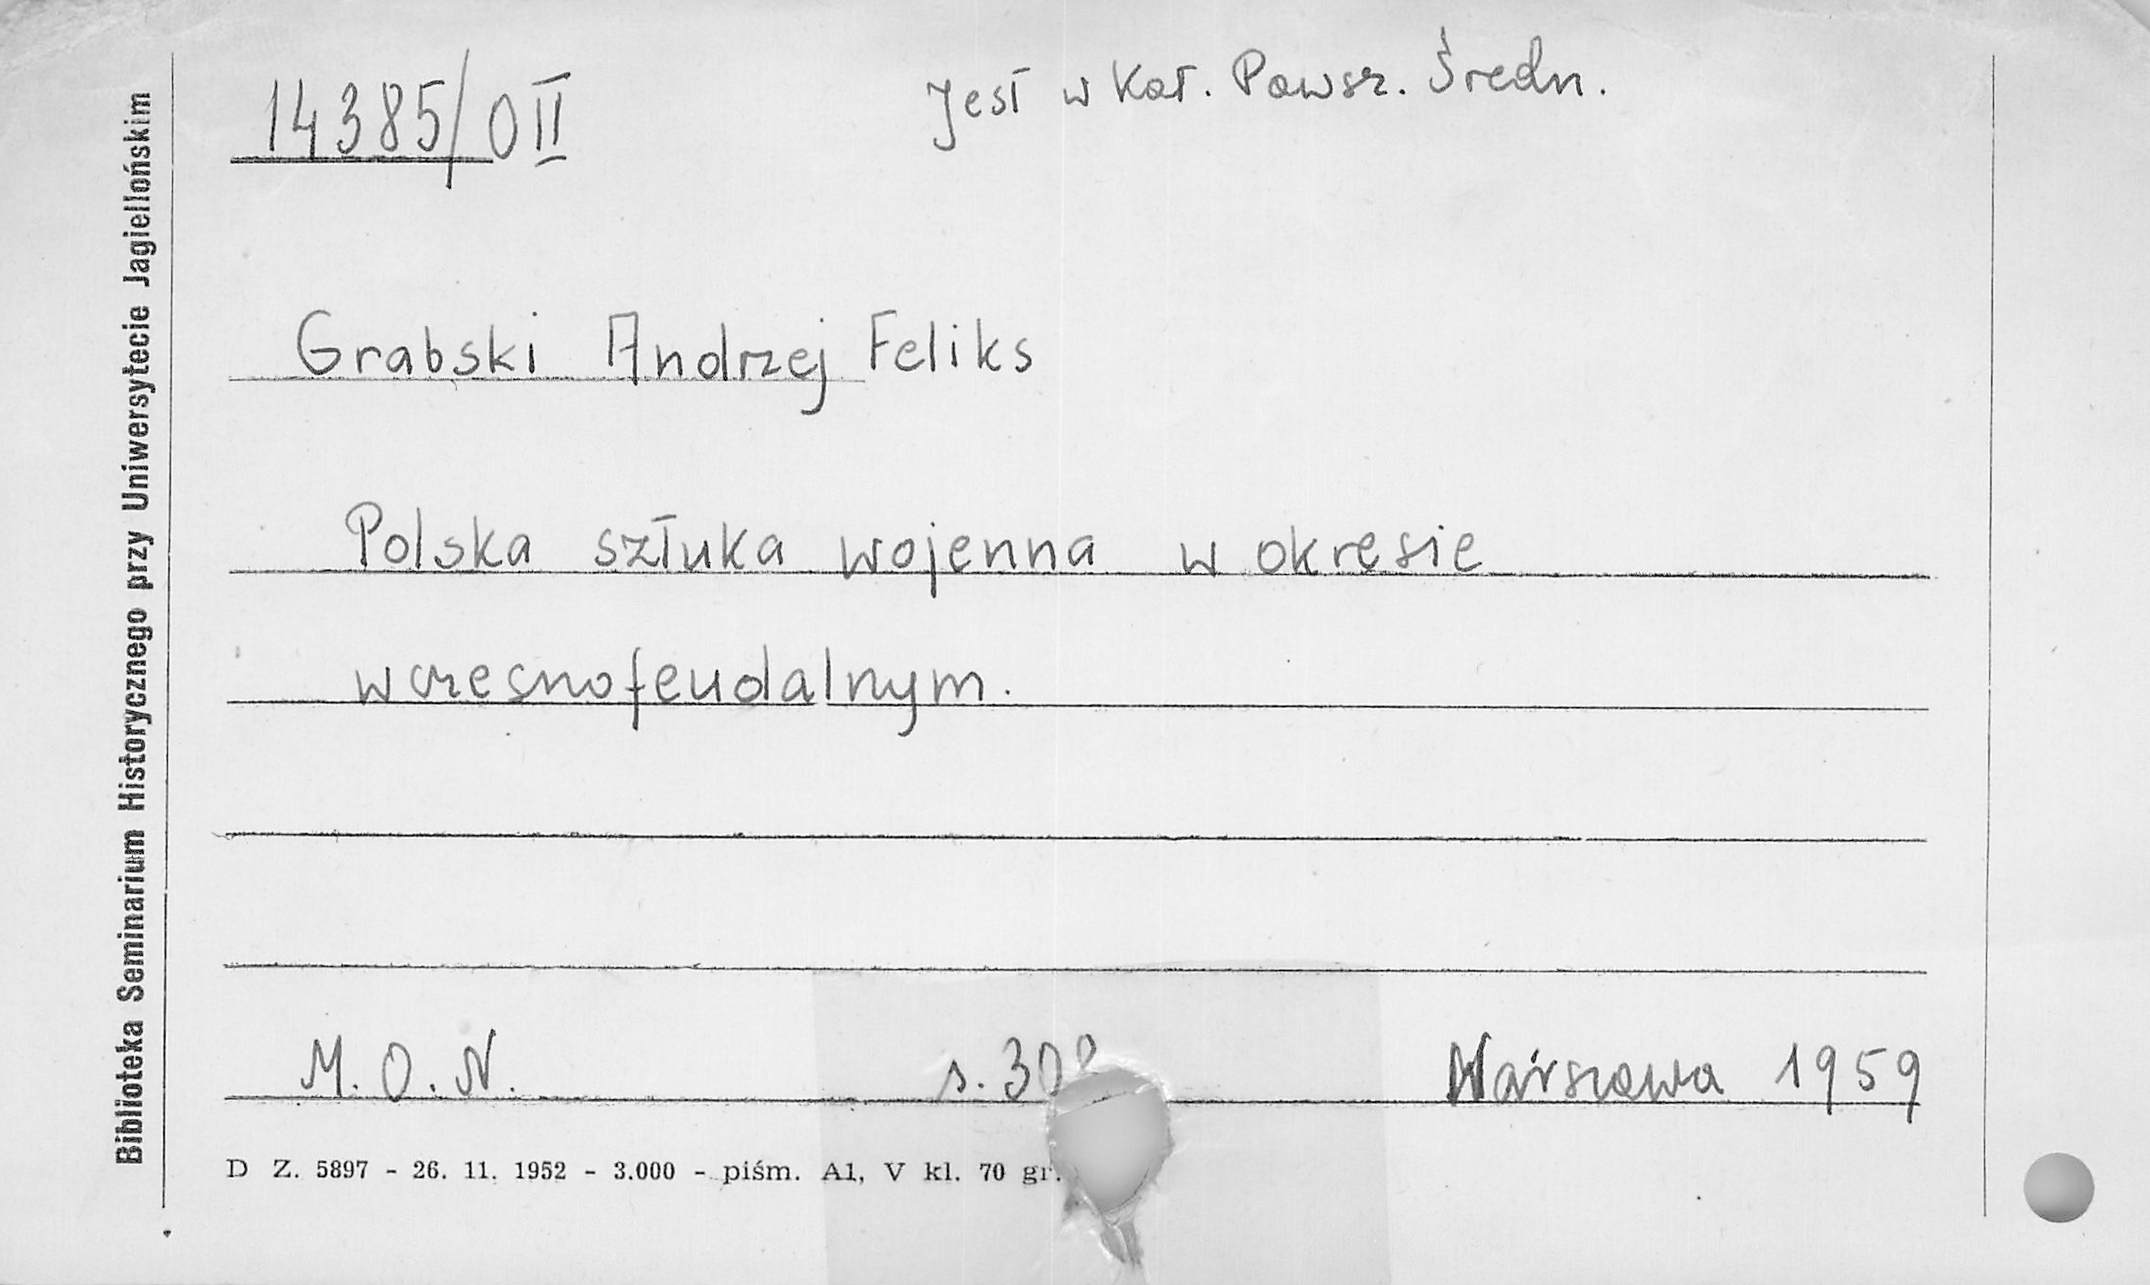 14385/O II
Jest w Kat. Powsz. Średn.
Grabski Andrzej Feliks
Polska sztuka wojenna w okresie
wczesnofeudalnym.
M. O. N. s. Warszawa 1959
D Z. 5897 - 26. 11. 1952 - 3.000 - piśm. A1, V kl. 70 gr.
Biblioteka Seminarium Historycznego przy Uniwersytecie Jagiellońskim